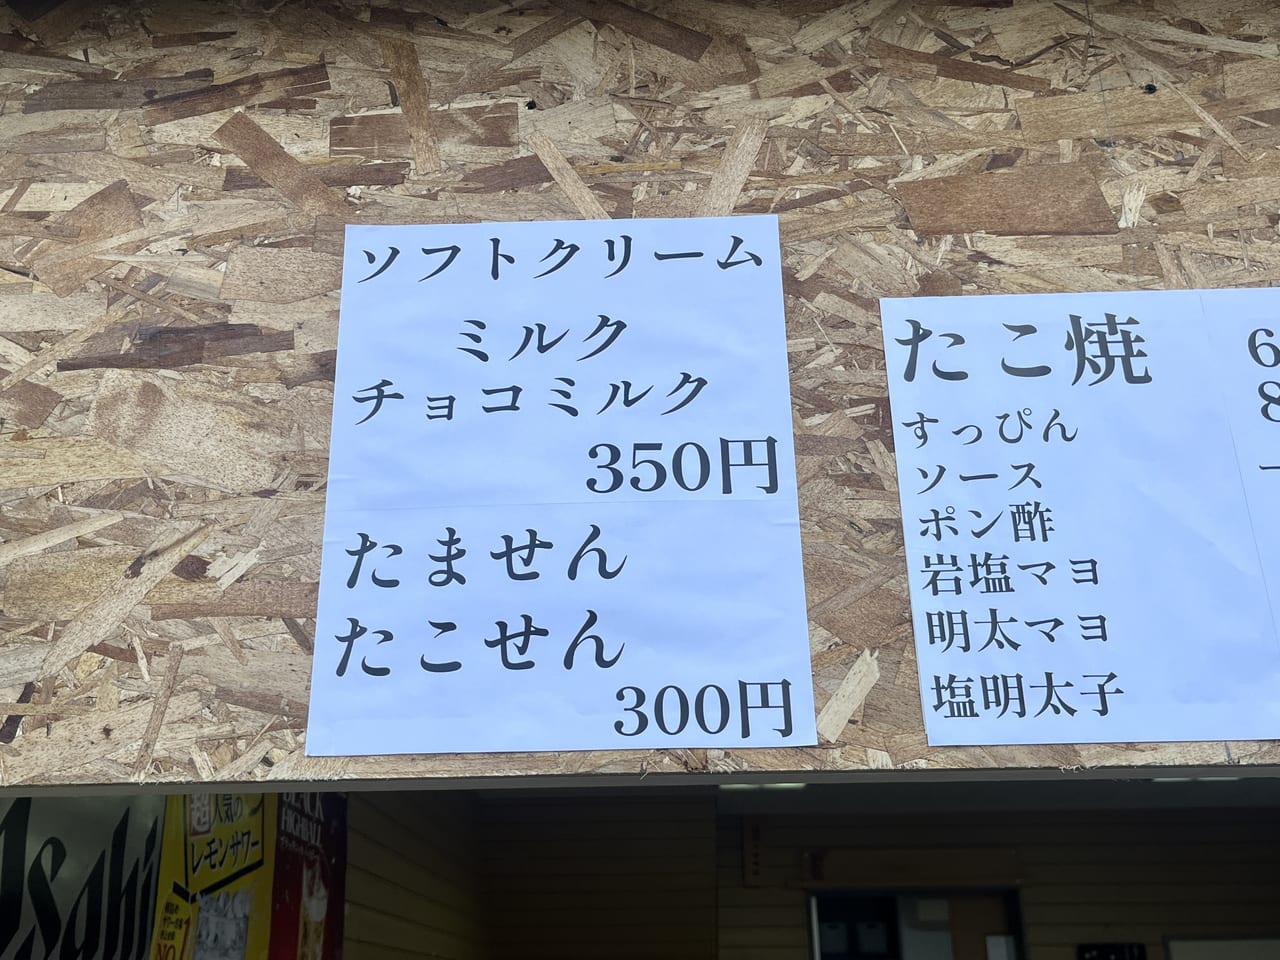 ソフトクリーム
ミルク
チョコミルク
350円
たません
たこせん
300円
たこ焼
すっぴん
ソース
ポン酢
岩塩マヨ
明太マヨ
塩明太子
6
8
Asahi
超人気の
レモンサワー
BLACK
HIGHBALL